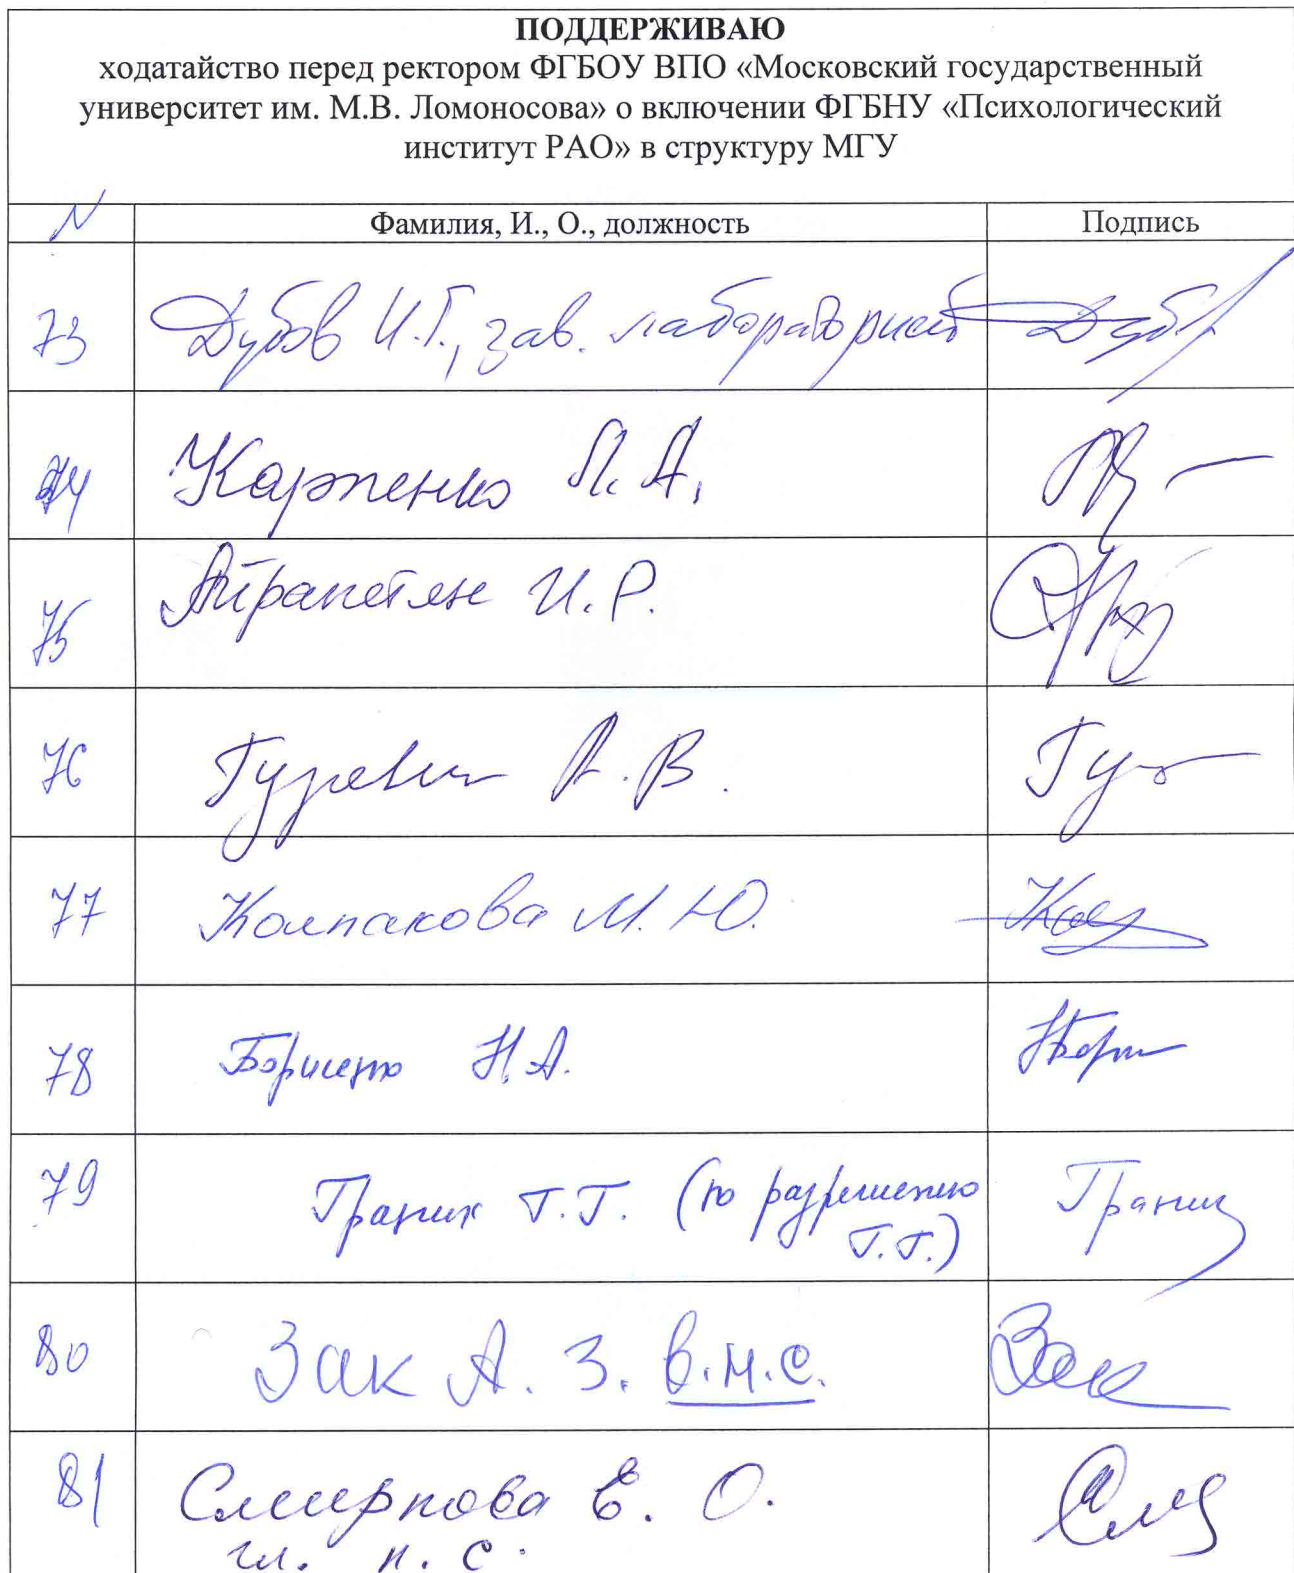 ПОДДЕРЖИВАЮ
ходатайство перед ректором ФГБОУ ВПО «Московский государственный
университет им. М.В. Ломоносова» о включении ФГБНУ «Психологический
институт РАО» в структуру МГУ
N Фамилия, И., О., должность Подпись
73 Дубов И.Г., зав. лабораторией
74 Карпенко Л.А.
75 Айрапетян И.Р.
76 Гуревич А.В.
77 Колпакова М.Ю.
78 Борисенко Н.А.
79 Граник Г.Г. (по разрешению
Г.Г.)
80 Зак А.З. в.н.с. Зак
81 Смирнова Е.О.
гл. н.с.